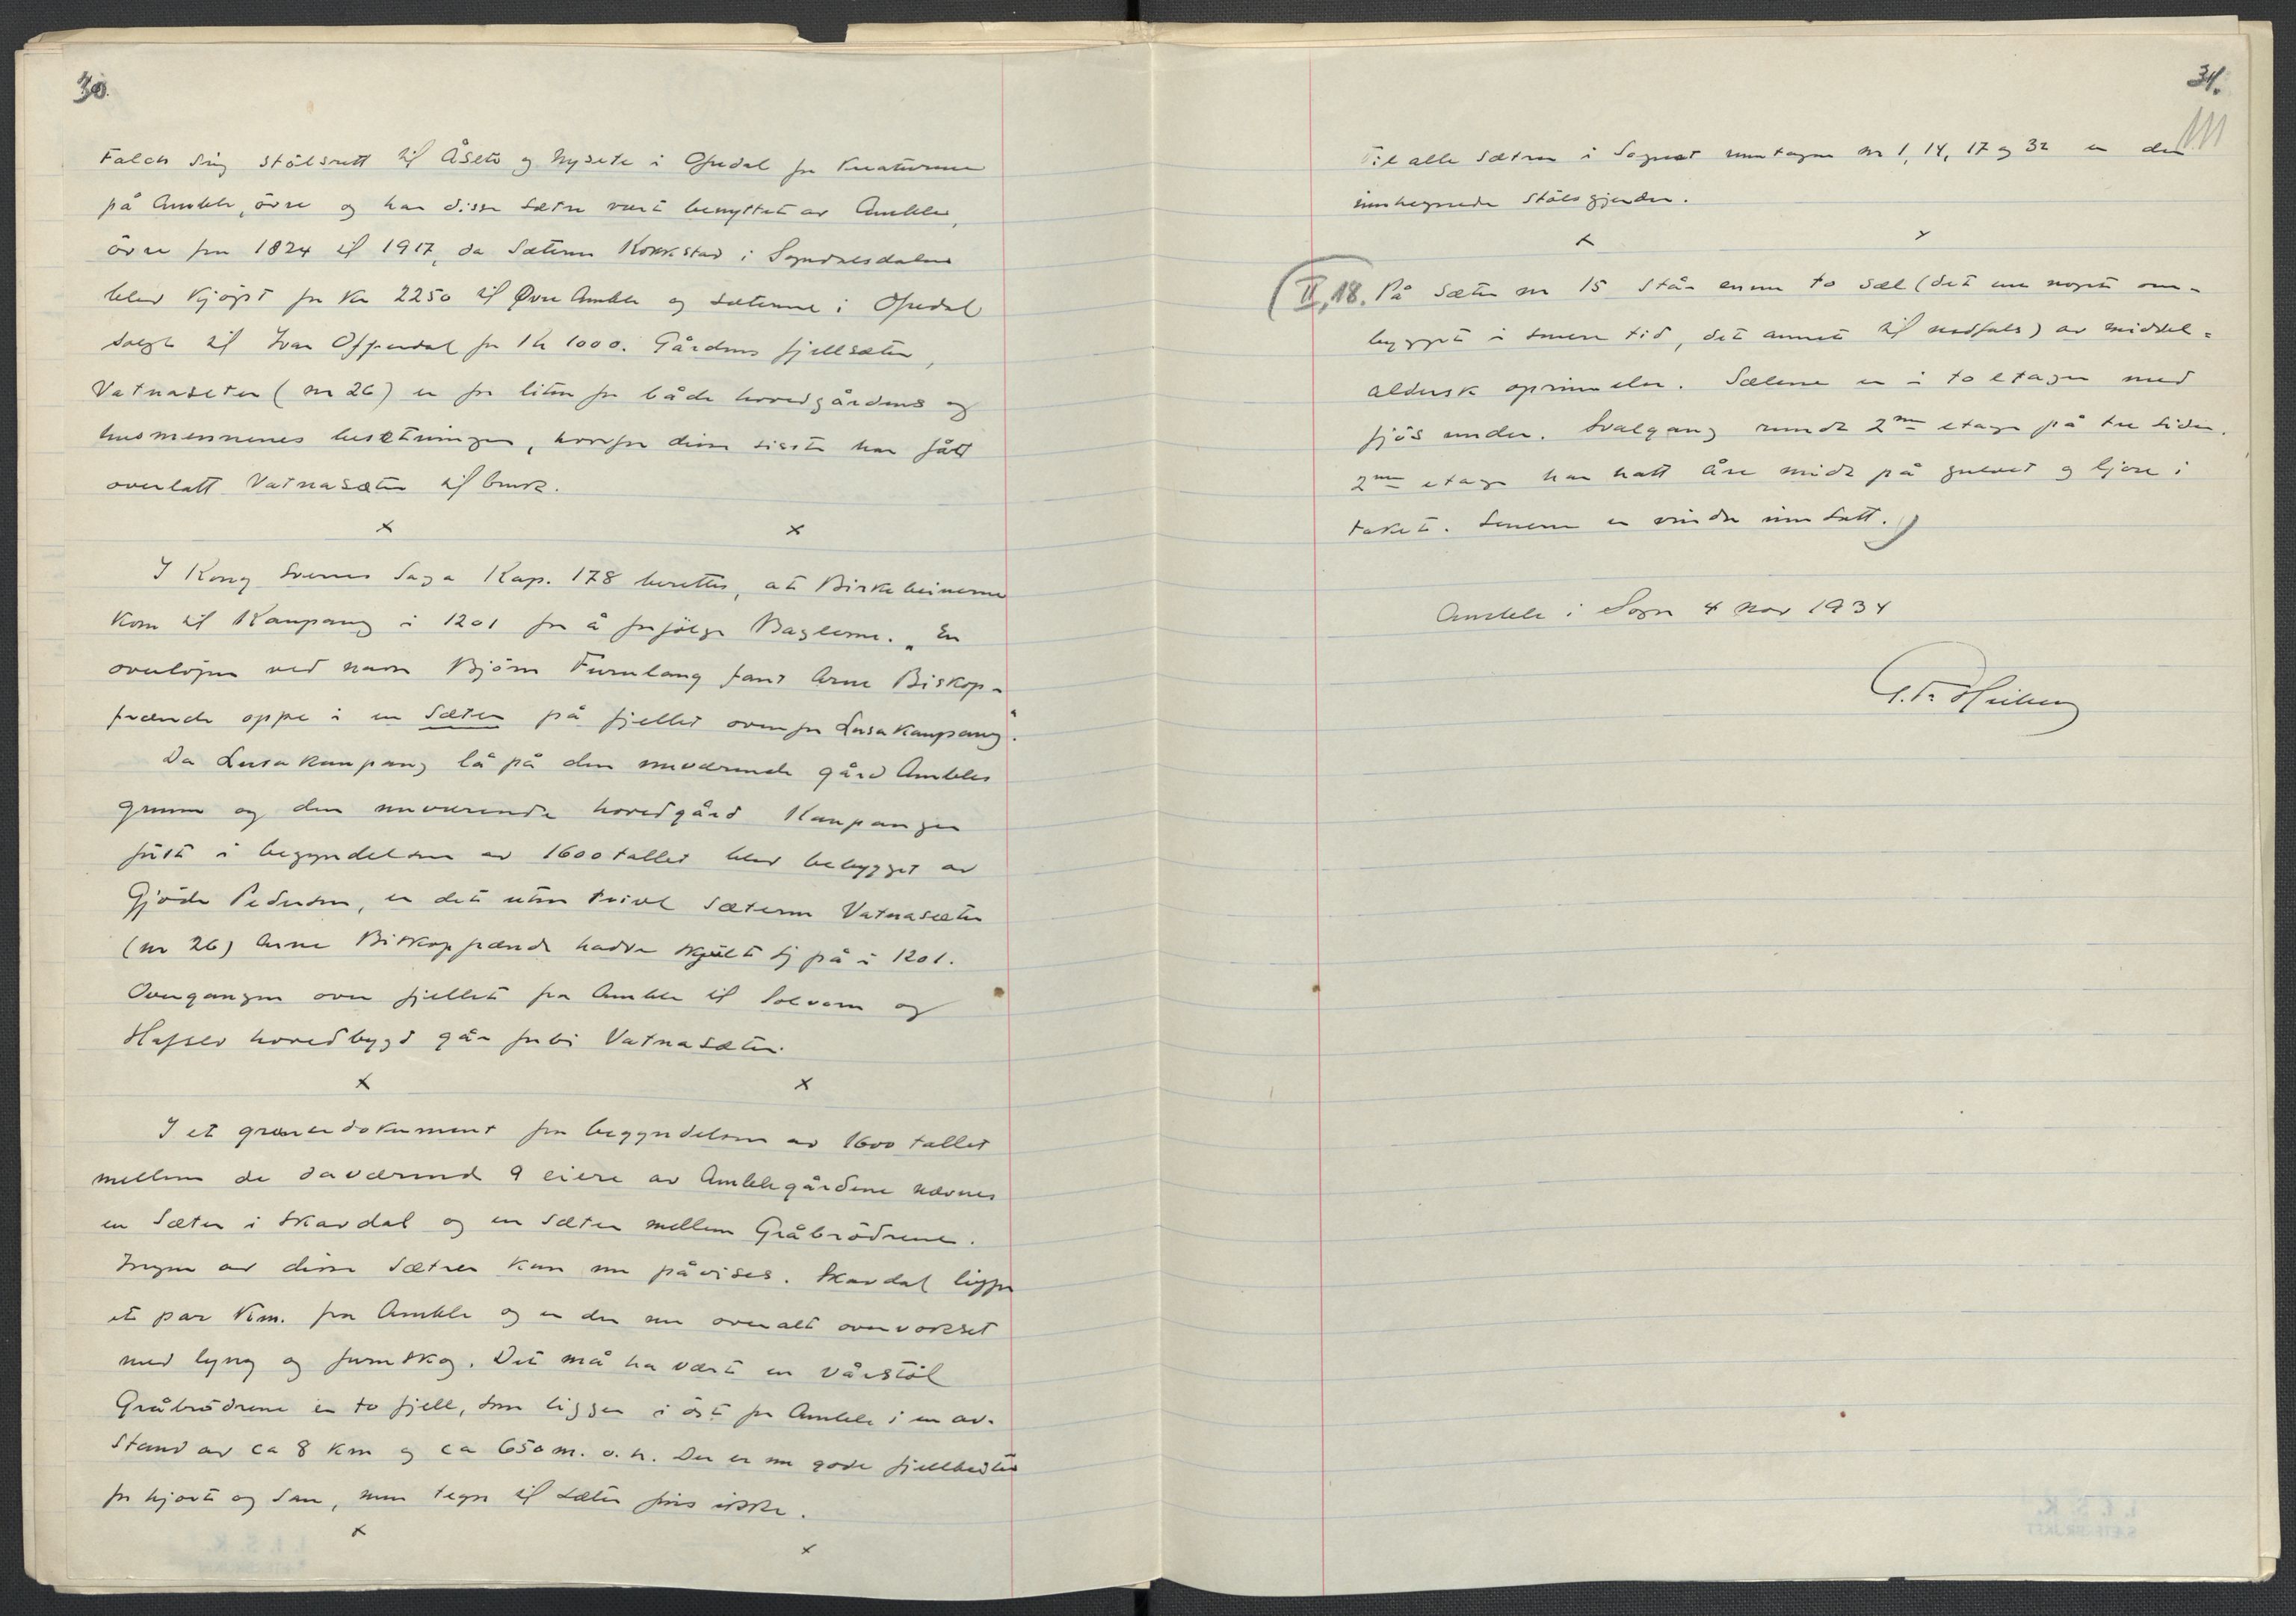 30.
Falch sig stölsrett til Åsete og Nysete i Ofredal for kreaturene
på Amble, övre og har disse sætre vært benyttet av Amble,
övre fra 1824 til 1917, da sæteren Kokkstad i Sogndalsdalen
blev kjöpt for Kr 2250 til Øvre Amble og sæterne i Ofredal
solgt til Ivar Offerdal for Kr 1000. Gårdens fjellsæter,
Vatnaseter (nr 26) er for liten for både hovedgårdens og
husmennenes besetninger, hvorfor disse siste har fått
overlatt Vatnasæter til bruk.
x x
I Kong Sverres Saga Kap. 178 berettes, at Birkebeinerne
kom til Kaupang i 1201 for å forfölge Baglerne. "En
overlöper ved navn Björn Furulang fant Arne Biskop-
frænde oppe i en sæter på fjellet ovenfor Lusakaupang".
Da Lusakaupang lå på den nuværende gård Ambles
grunn og den nuværende hovedgård Kaupanger
först i begyndelsen av 1600 tallet blev bebygget av
Gjöde Pedersen, er det uten tvivl sæteren Vatnasæter
(nr 26) Arne Biskopfrænde hadde skjult sig på i 1201.
Overgangen over fjellet fra Amble til Solvorn og
Hafslo hovedbygd går forbi Vatnasæter.
x x
I et grensedokument fra begyndelsen av 1600 tallet
mellem de daværend 9 eiere av Amblegårdene nævnes
en sæter i Skavdal og en sæter mellem Gråbrödrene.
Ingen av disse sætrer kan nu påvises. Skavdal ligger
et par Km. fra Amble og er der nu overalt overvokset
med lyng og furuskog. Det må ha vært en vårstöl
Gråbrödrene er to fjell, som ligger i öst for Amble i en av-
stand av ca 8 km og ca 650 m. o. h. Der er nu gode fjellbeiter
for hjort og sau, men tegn til sæter fins ikke.
x x
31.
Til alle sætrer i Sognet unntagen nr 1, 14, 17 og 32 er der
innhegnede stölsgjerder.
x x
(II, 18. På sæter nr 15 står ennu to sæl (det ene noget om-
bygget i senere tid, det annet til nedfals) av middel-
aldersk oprinnelse. Sælene er i to etager med
fjös under. Svalgang rundt 2nen etage på tre sider.
2nen etage har hatt åre midt på gulvet og ljore i
taket. Senere er vindu innsatt.)
Amble i Sogn 4 nov 1934
G. F. Heiberg